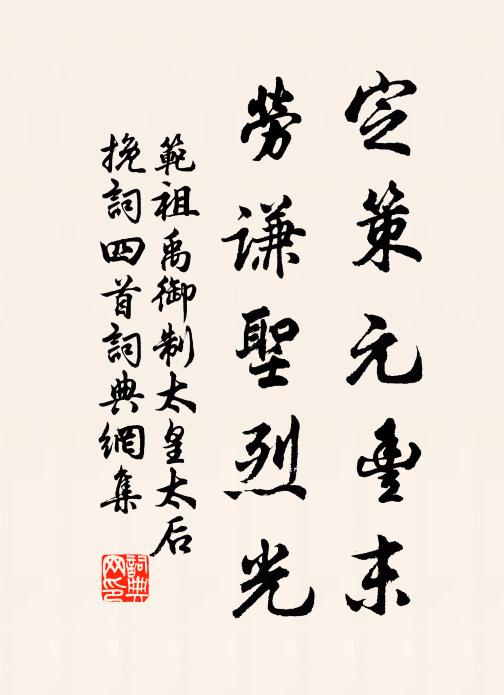 定策元豐末
勞謙聖烈光
範祖禹御制太皇太后
挽詞四首詞典網集
詞典网印